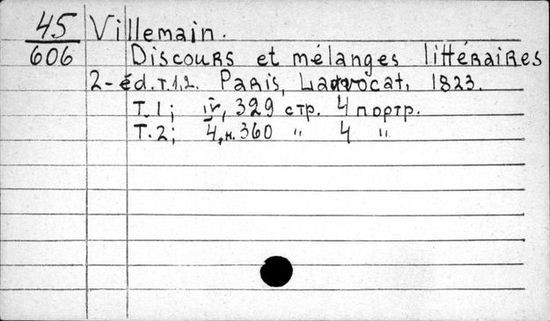 45 Villemain.
606 Discours et mélanges littéraires
2-éd. т.1,2. Paris, Ladvocat, 1823.
Т.1; IV, 329 стр. 4 портр.
Т.2; 4,н.360 " 4 "